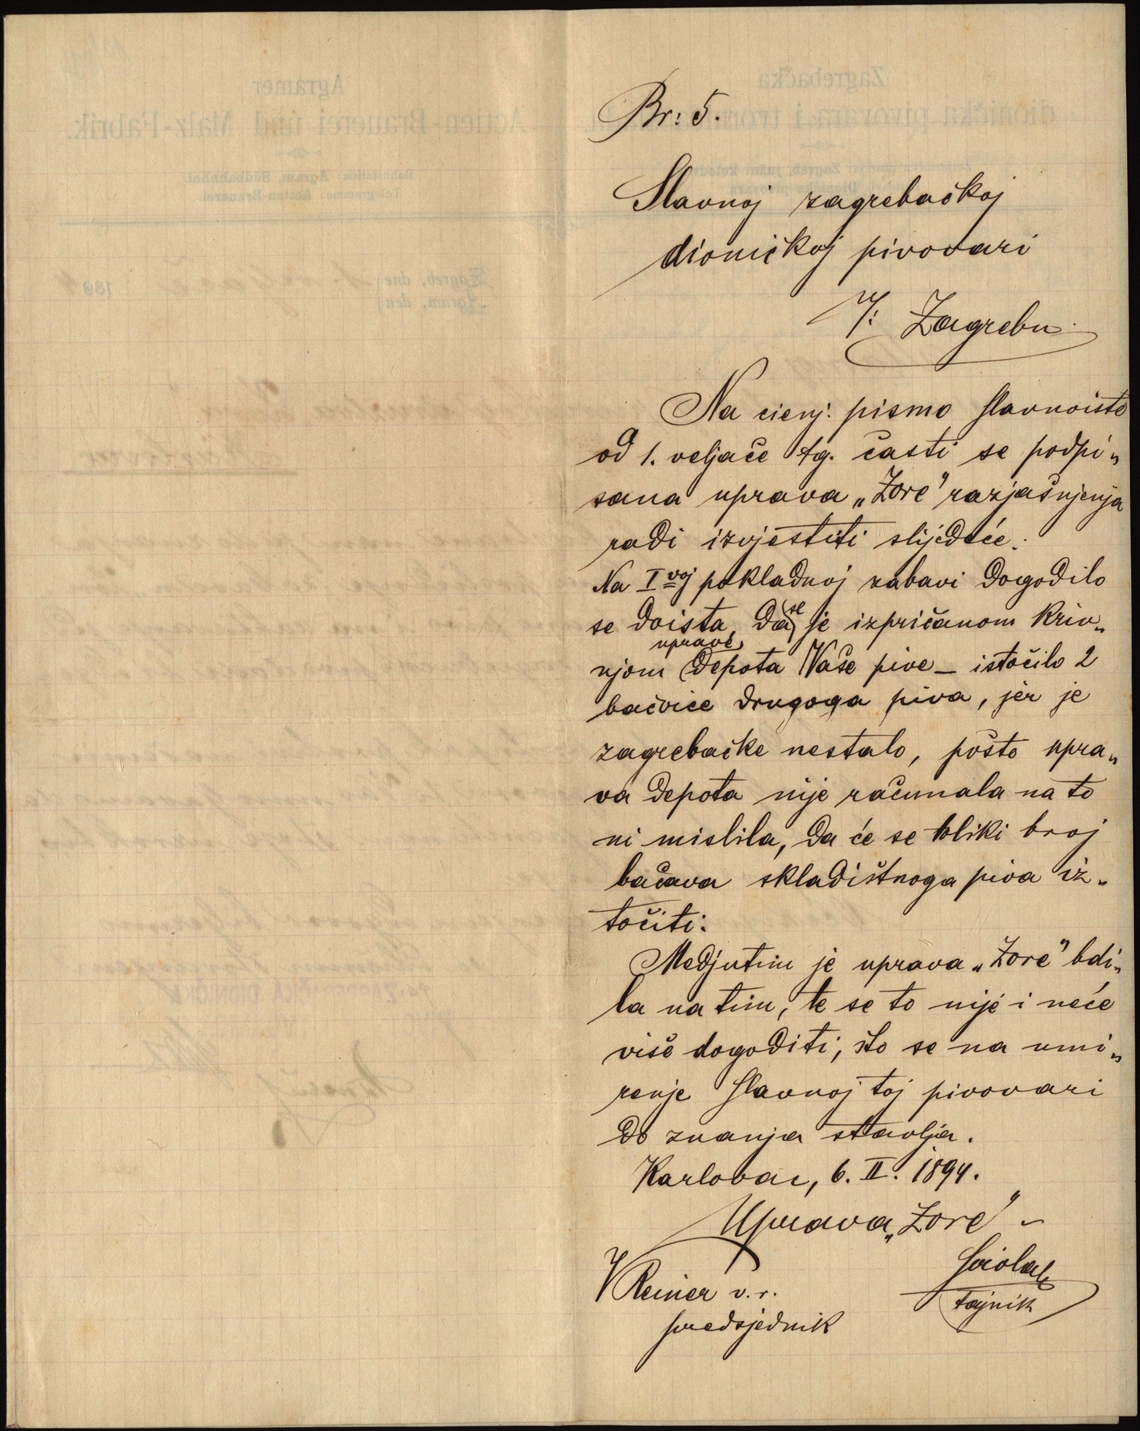 Br: 5.
Slavnoj zagrebačkoj
dioničkoj pivovari
U: Zagrebu
Na cienj. pismo slavnoiste
od 1. veljače tg. časti se podpi„
sana uprava „Zore" razjašnjenja
radi izvjestiti slijedeće:
Na I voj pokladnoj zabavi dogodilo
se doista, da se je izpričanom kriv„
njom uprave depota Vaše pive – istočilo 2
bačvice drugoga piva, jer je
zagrebačke nestalo, pošto upra„
va depota nije računala na to
ni mislila, da će se toliki broj
bačava skladištnoga piva iz„
točiti:
Medjutim je uprava „Zore" bdi„
la na tim, te se to nije i neće
više dogoditi, što se na umi„
renje slavnoj toj pivovari
do znanja stavlja.
Karlovac, 6. II. 1894.
Uprava „Zore"
V Reiner v. r.
predsjednik
tajnik
Zagrebačka
dionička pivovara i tvornica
Agramer
Actien-Brauerei und Malz-Fabrik.
Zagreb, dne
Agram, den
189